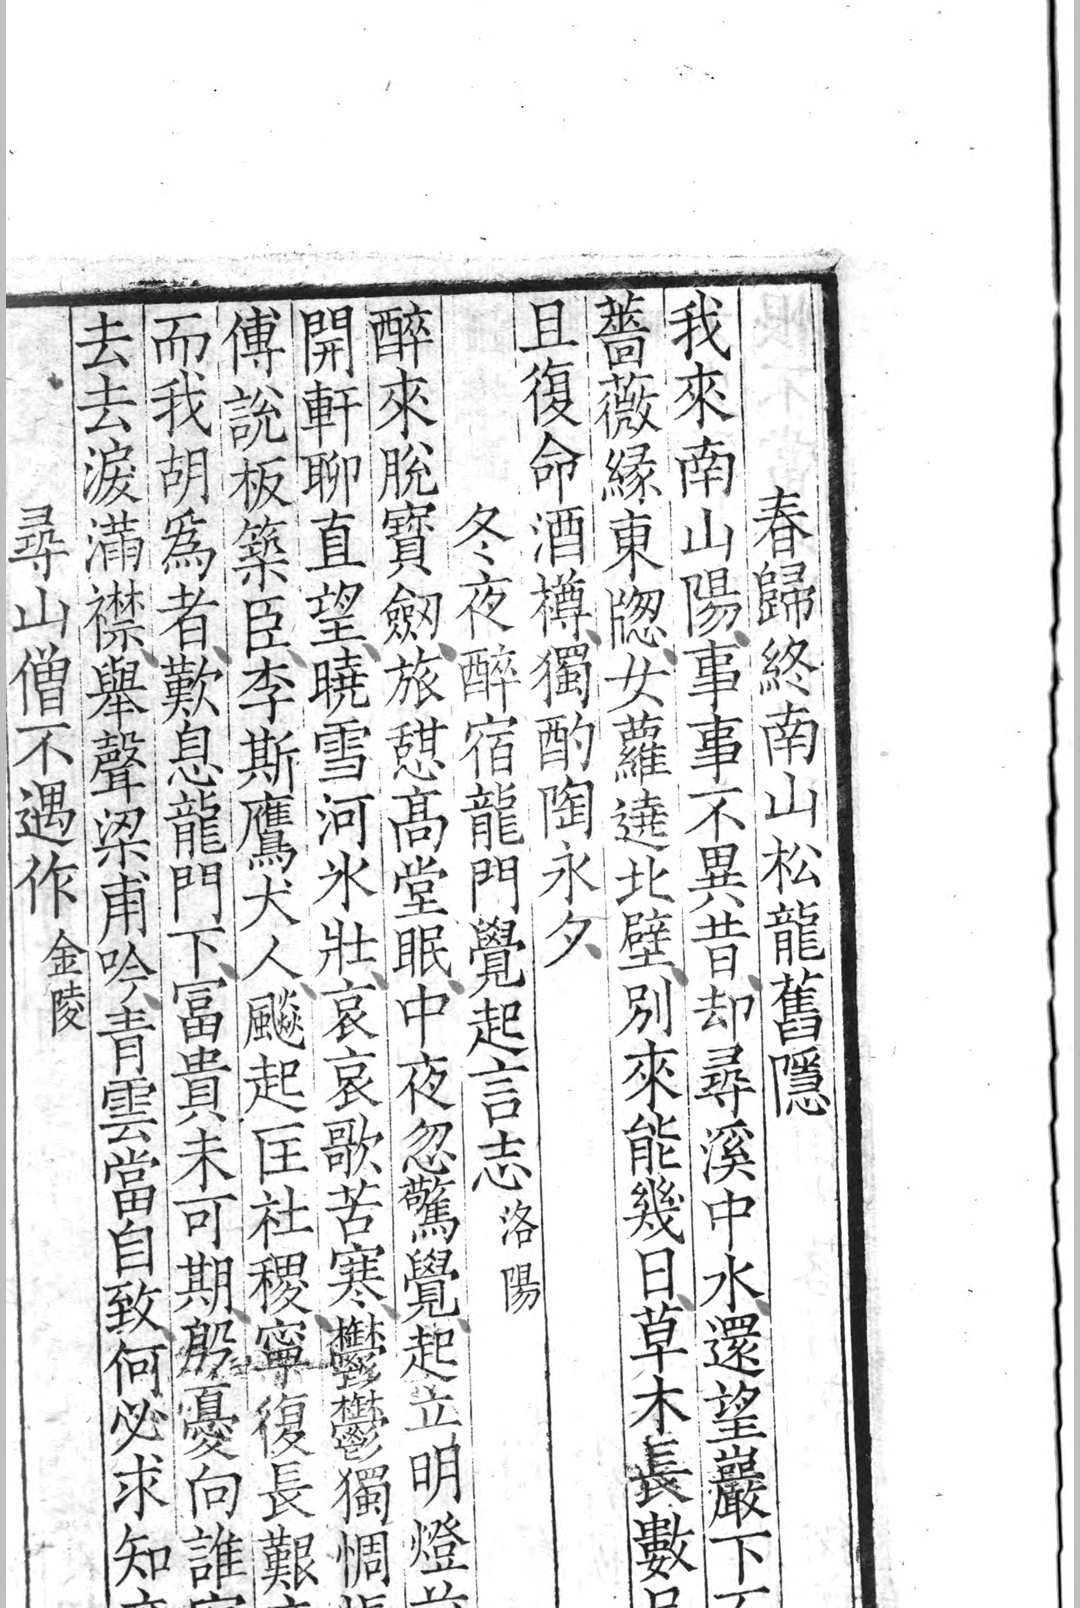 春歸終南山松龍舊隱
我來南山陽事事不異昔却尋溪中水還望巖下
薔薇緣東牕女蘿遶北壁別來能幾日草木長數
且復命酒樽獨酌陶永夕
冬夜醉宿龍門覺起言志洛陽
醉來脫寶劔旅憇高堂眠中夜忽驚覺起立明燈前
開軒聊直望曉雪河氷壯哀哀歌苦寒鬱鬱獨惆
傅說板築臣李斯鷹犬人飈起匡社稷寧復長艱
而我胡爲者歎息龍門下富貴未可期殷憂向誰
去去淚滿襟舉聲梁甫吟青雲當自致何必求知
尋山僧不遇作金陵